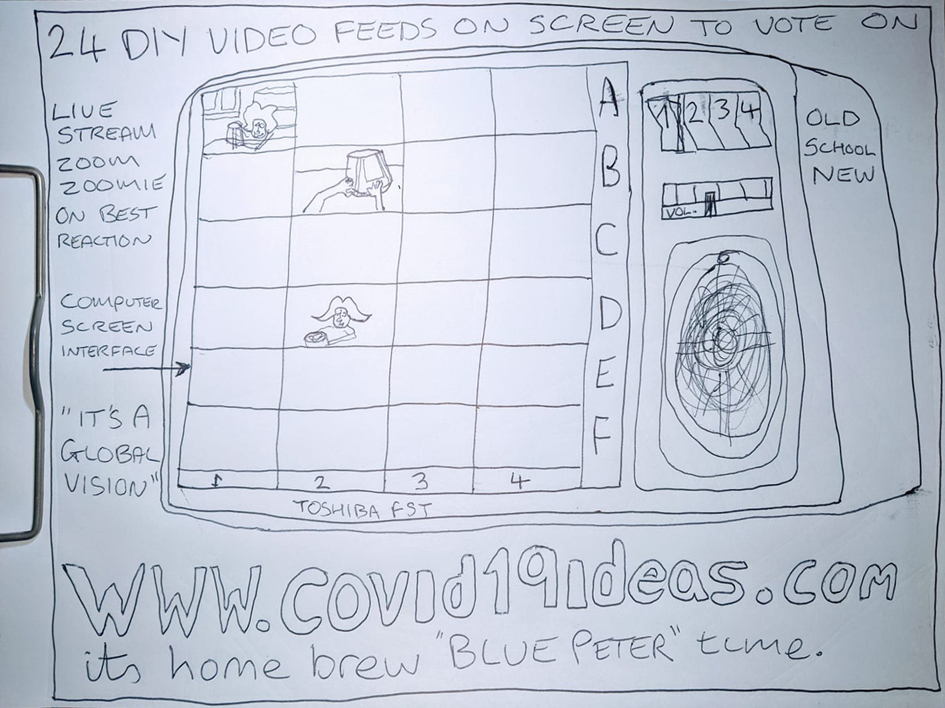 24 DIY VIDEO FEEDS ON SCREEN TO VOTE ON
LIVE
STREAM
ZOOM
ZOOMIE
ON BEST
REACTION
COMPUTER
SCREEN
INTERFACE
"IT'S A
GLOBAL
VISION"
A
B
C
D
E
F
1 2 3 4
TOSHIBA FST
1 2 3 4
VOL.
OLD
SCHOOL
NEW
WWW.COVId19IdEas.COM
its home brew "BLUE PETER" time.